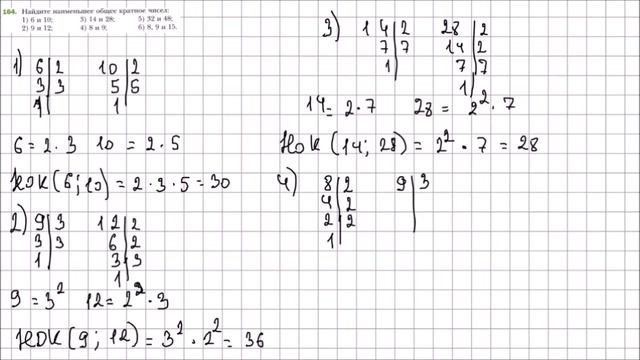 164. Найдите наименьшее общее кратное чисел:
1) 6 и 10; 3) 14 и 28; 5) 32 и 48;
2) 9 и 12; 4) 8 и 9; 6) 8, 9 и 15.
1) 6 | 2 10 | 2
3 | 3 5 | 5
1 | 1 |
6 = 2 · 3 10 = 2 · 5
НОК (6; 10) = 2 · 3 · 5 = 30
2) 9 | 3 12 | 2
3 | 3 6 | 2
1 | 3 | 3
1 |
9 = 3² 12 = 2² · 3
НОК (9; 12) = 3² · 2² = 36
3) 14 | 2 28 | 2
7 | 7 14 | 2
1 | 7 | 7
1 |
14 = 2 · 7 28 = 2² · 7
НОК (14; 28) = 2² · 7 = 28
4) 8 | 2 9 | 3
4 | 2
2 | 2
1 |